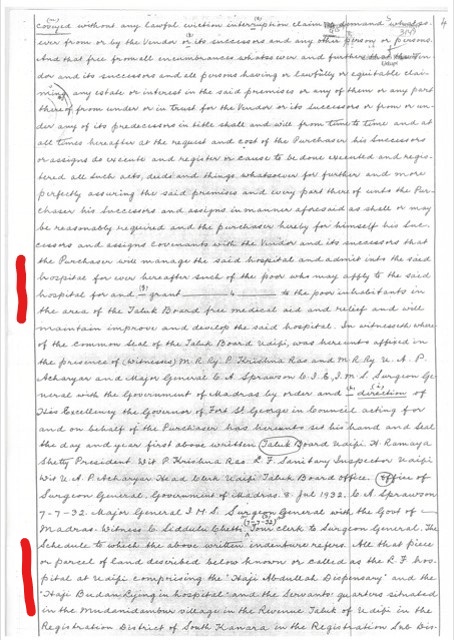 cooyed without any lawful eviction interruption claim demand whatso
ever from or by the Vendor or its successors and any other person or persons.
And that free from all encumbrances whatsoever and further that the Ven-
dor and its successors and all persons having or lawfully or equitable clai-
ming any estate or interest in the said premises or any of them or any part
thereof from under or in trust for the Vendor or its successors or from or un-
der any of its predecessors in title shall and will from time to time and at
all times hereafter at the request and cost of the Purchaser his Successors
or assigns do execute and register or cause to be done executed and regis-
tered all such acts, deeds and things whatsoever for further and more
perfectly assuring the said premises and every part thereof unto the Pur-
chaser his Successors and assigns in manner aforesaid as shall or may
be reasonably required and the purchaser hereby for himself his Suc-
cessors and assigns covenants with the Vendor and its successors that
the Purchaser will manage the said hospital and admit into the said
hospital for ever hereafter such of the poor who may apply to the said
hospital for and grant to the poor inhabitants in
the area of the Taluk Board free medical aid and relief and will
maintain improve and develop the said hospital. In witness where
of the Common Seal of the Taluk Board Udifi, was hereunto affixed in
the presence of (witnesses) M. R. Ry. P. Krishna Rao and M R Ry U. A. P.
Acharyar and Major General C. A. Sprawson C. I. E, I. M. S. Surgeon Ge-
neral with the Government of Madras by order and direction of
His Excellency the Governor of Fort St George in Council acting for
and on behalf of the Purchaser has hereunto set his hand and Seal
the day and year first above written Taluk Board Udifi H. Ramaya
Shetty President. Wit P Krishna Rao. L. F. Sanitary Inspector Udifi
Wit U. A. P. Acharyar Head Clerk Udifi Taluk Board office. Office of
Surgeon General, Government of Madras. 8 Jul 1932. C. A. Sprawson
7-7-32. Major General I. M. S. Surgeon General with the Govt of
Madras. Witness C. Siddulu Chetti (7-7-32) clerk to Surgeon General. The
Schedule to which the above written indenture refers. All that piece
or parcel of Land described below known or called as the L. F. hos-
pital at Udifi comprising the "Haji Abdullah Dispensary" and the
"Haji Budan Lying in hospital" and the Servants quarters situated
in the Mudanidambur village in the Revenue Taluk of Udifi in the
Registration District of South Kanara in the Registration Sub Dis-